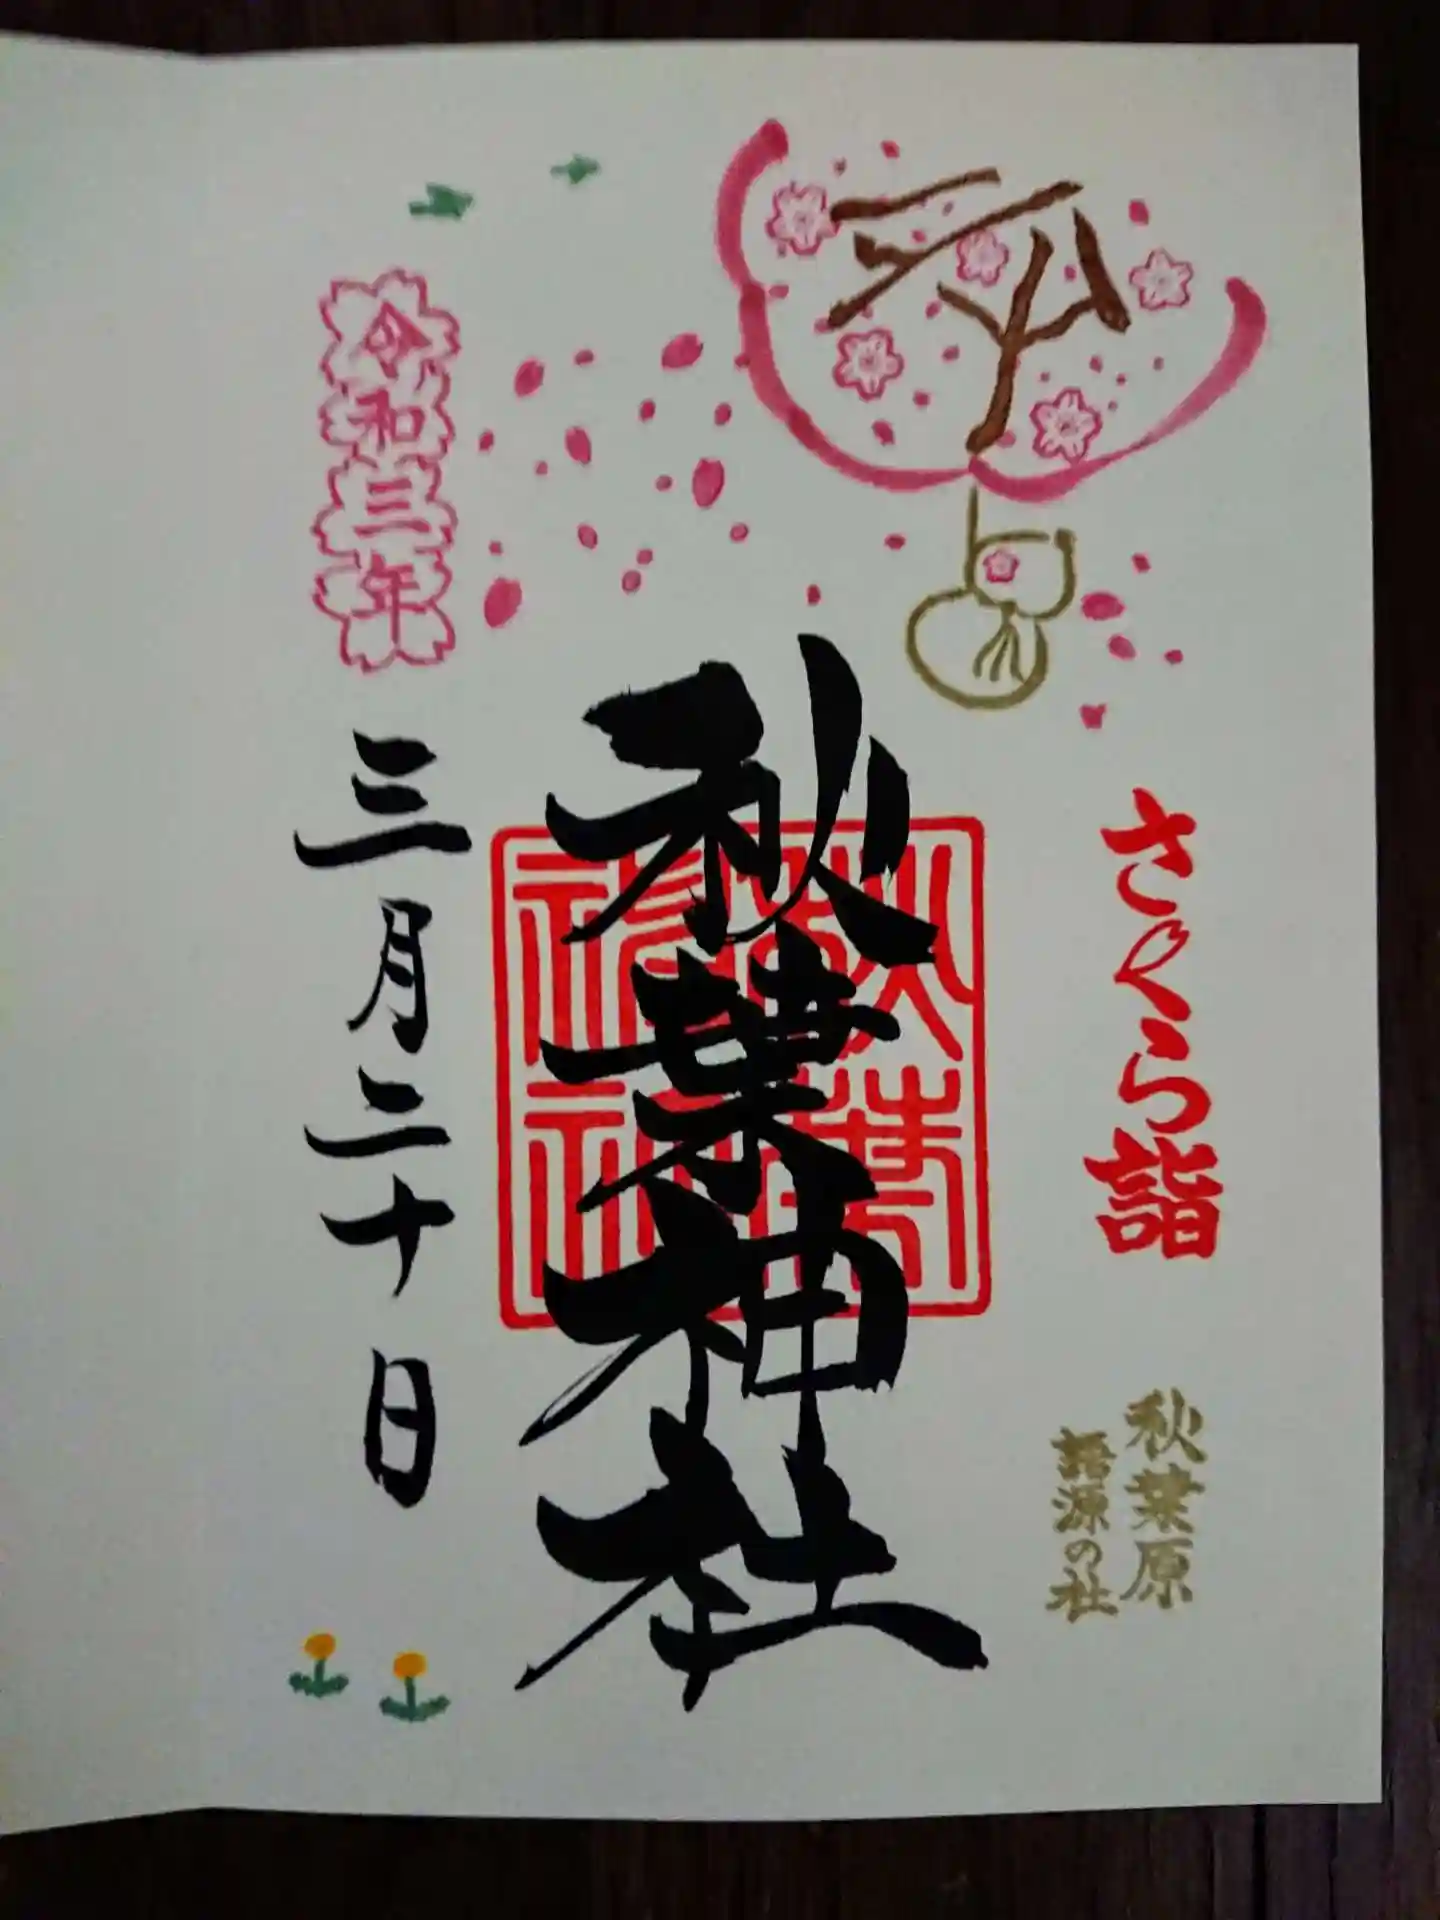 さくら詣
秋葉原
語源の社
秋葉神社
秋葉
神社
令和三年
三月二十日